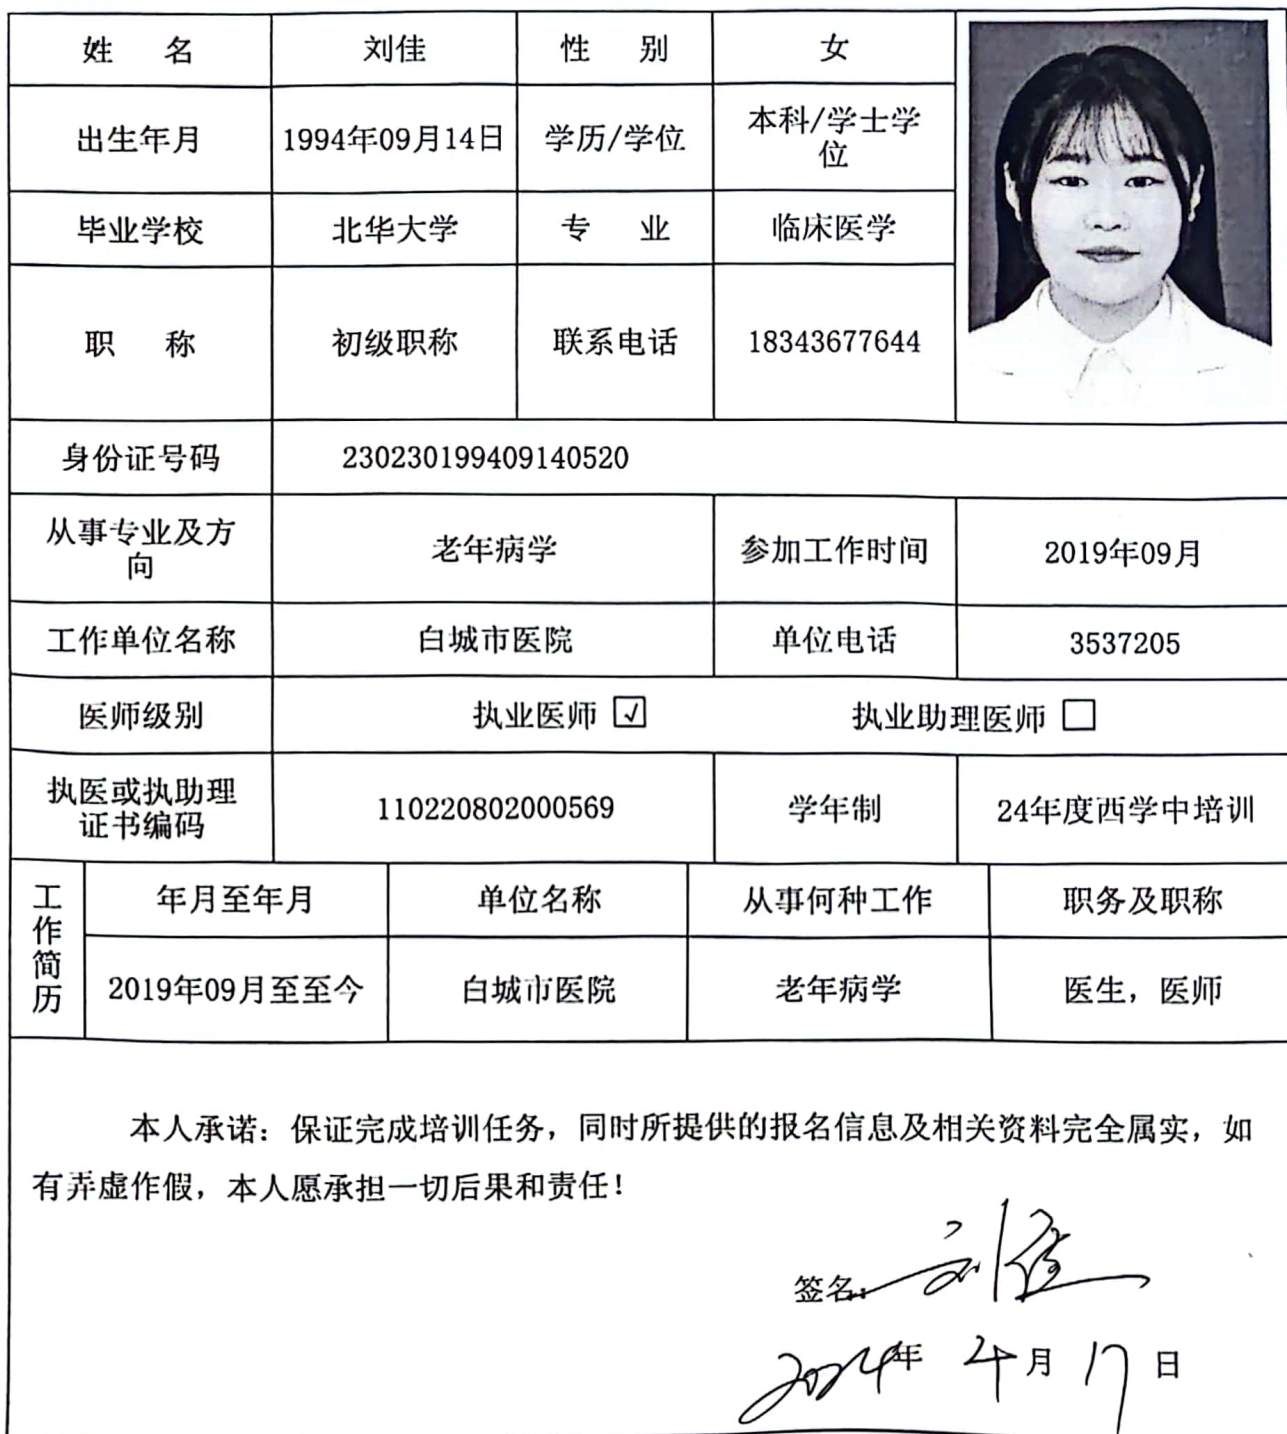 姓 名 刘佳 性 别 女
出生年月 1994年09月14日 学历/学位 本科/学士学
位
毕业学校 北华大学 专 业 临床医学
职 称 初级职称 联系电话 18343677644
身份证号码 230230199409140520
从事专业及方
向 老年病学 参加工作时间 2019年09月
工作单位名称 白城市医院 单位电话 3537205
医师级别 执业医师 ☑ 执业助理医师 □
执医或执助理
证书编码 110220802000569 学年制 24年度西学中培训
工作简历
年月至年月 单位名称 从事何种工作 职务及职称
2019年09月至至今 白城市医院 老年病学 医生，医师
本人承诺：保证完成培训任务，同时所提供的报名信息及相关资料完全属实，如
有弄虚作假，本人愿承担一切后果和责任！
签名：刘佳
2024年 4月 17日